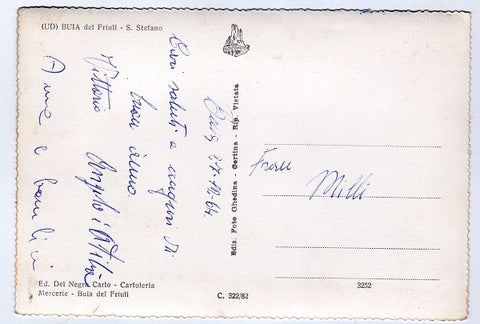 (UD) BUIA del Friuli - S. Stefano
Buia 27-12-64
Cari saluti e auguri di
buon anno.
Vittorio Angela i Attilio
Anna e
Ediz. Foto Ghedina - Cortina - Rip. Vietata
Frau
Milli
Ed. Del Negro Carlo - Cartoleria
Mercerie - Buia del Friuli
C. 322/82
3252